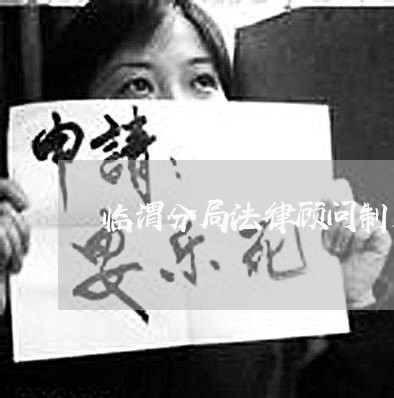 申請：
临渭分局法律顾问制
安乐死